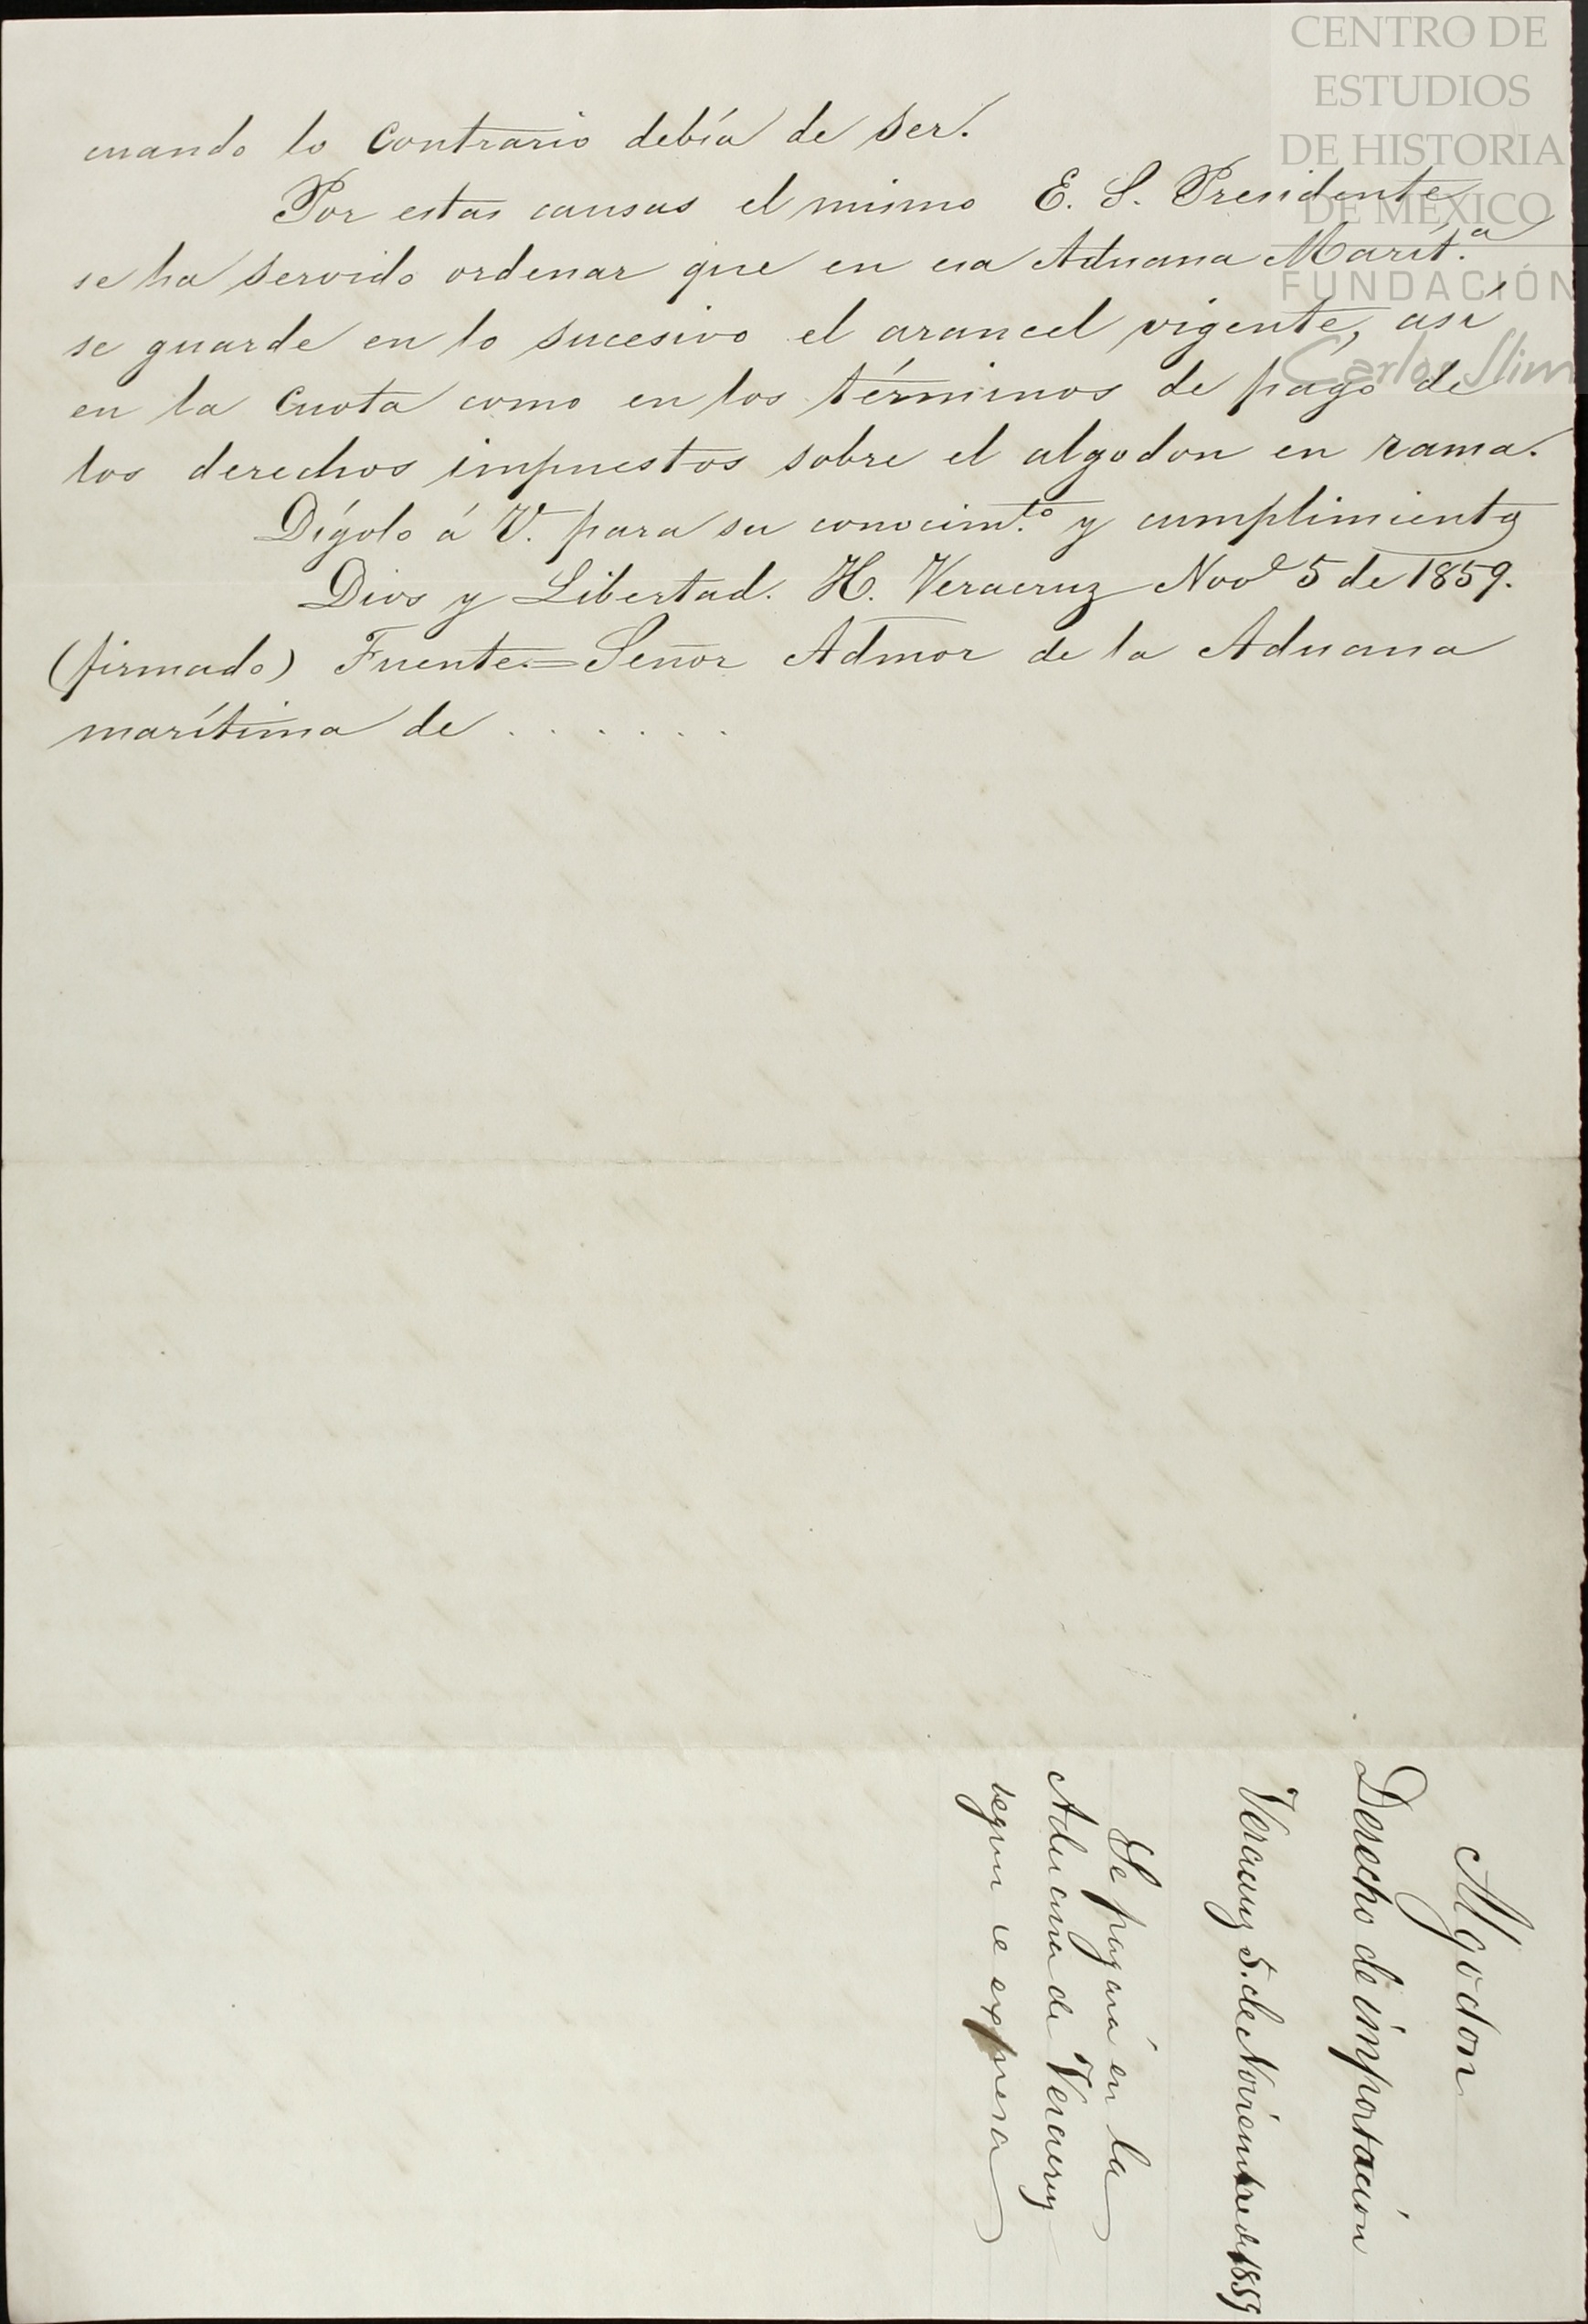 CENTRO DE
ESTUDIOS
DE HISTORIA
DE MÉXICO
FUNDACIÓN
Carlos Slim
cuando lo contrario debía de ser.
Por estas causas el mismo E. S. Presidente
se ha servido ordenar que en esa Aduana Marít.ª
se guarde en lo sucesivo el arancel vigente, así
en la cuota como en los términos de pago de
los derechos impuestos sobre el algodon en rama.
Dígolo á V. para su conocim.to y cumplimiento
Dios y Libertad. H. Veracruz Nove 5 de 1859.
(firmado) Fuente.=Señor Admor de la Aduana
marítima de . . . . . . .
Algodon
Derecho de importación
Veracruz 5. de Noviembre de 1859
Se pagará en la
Aduana de Veracruz
segun se expresa